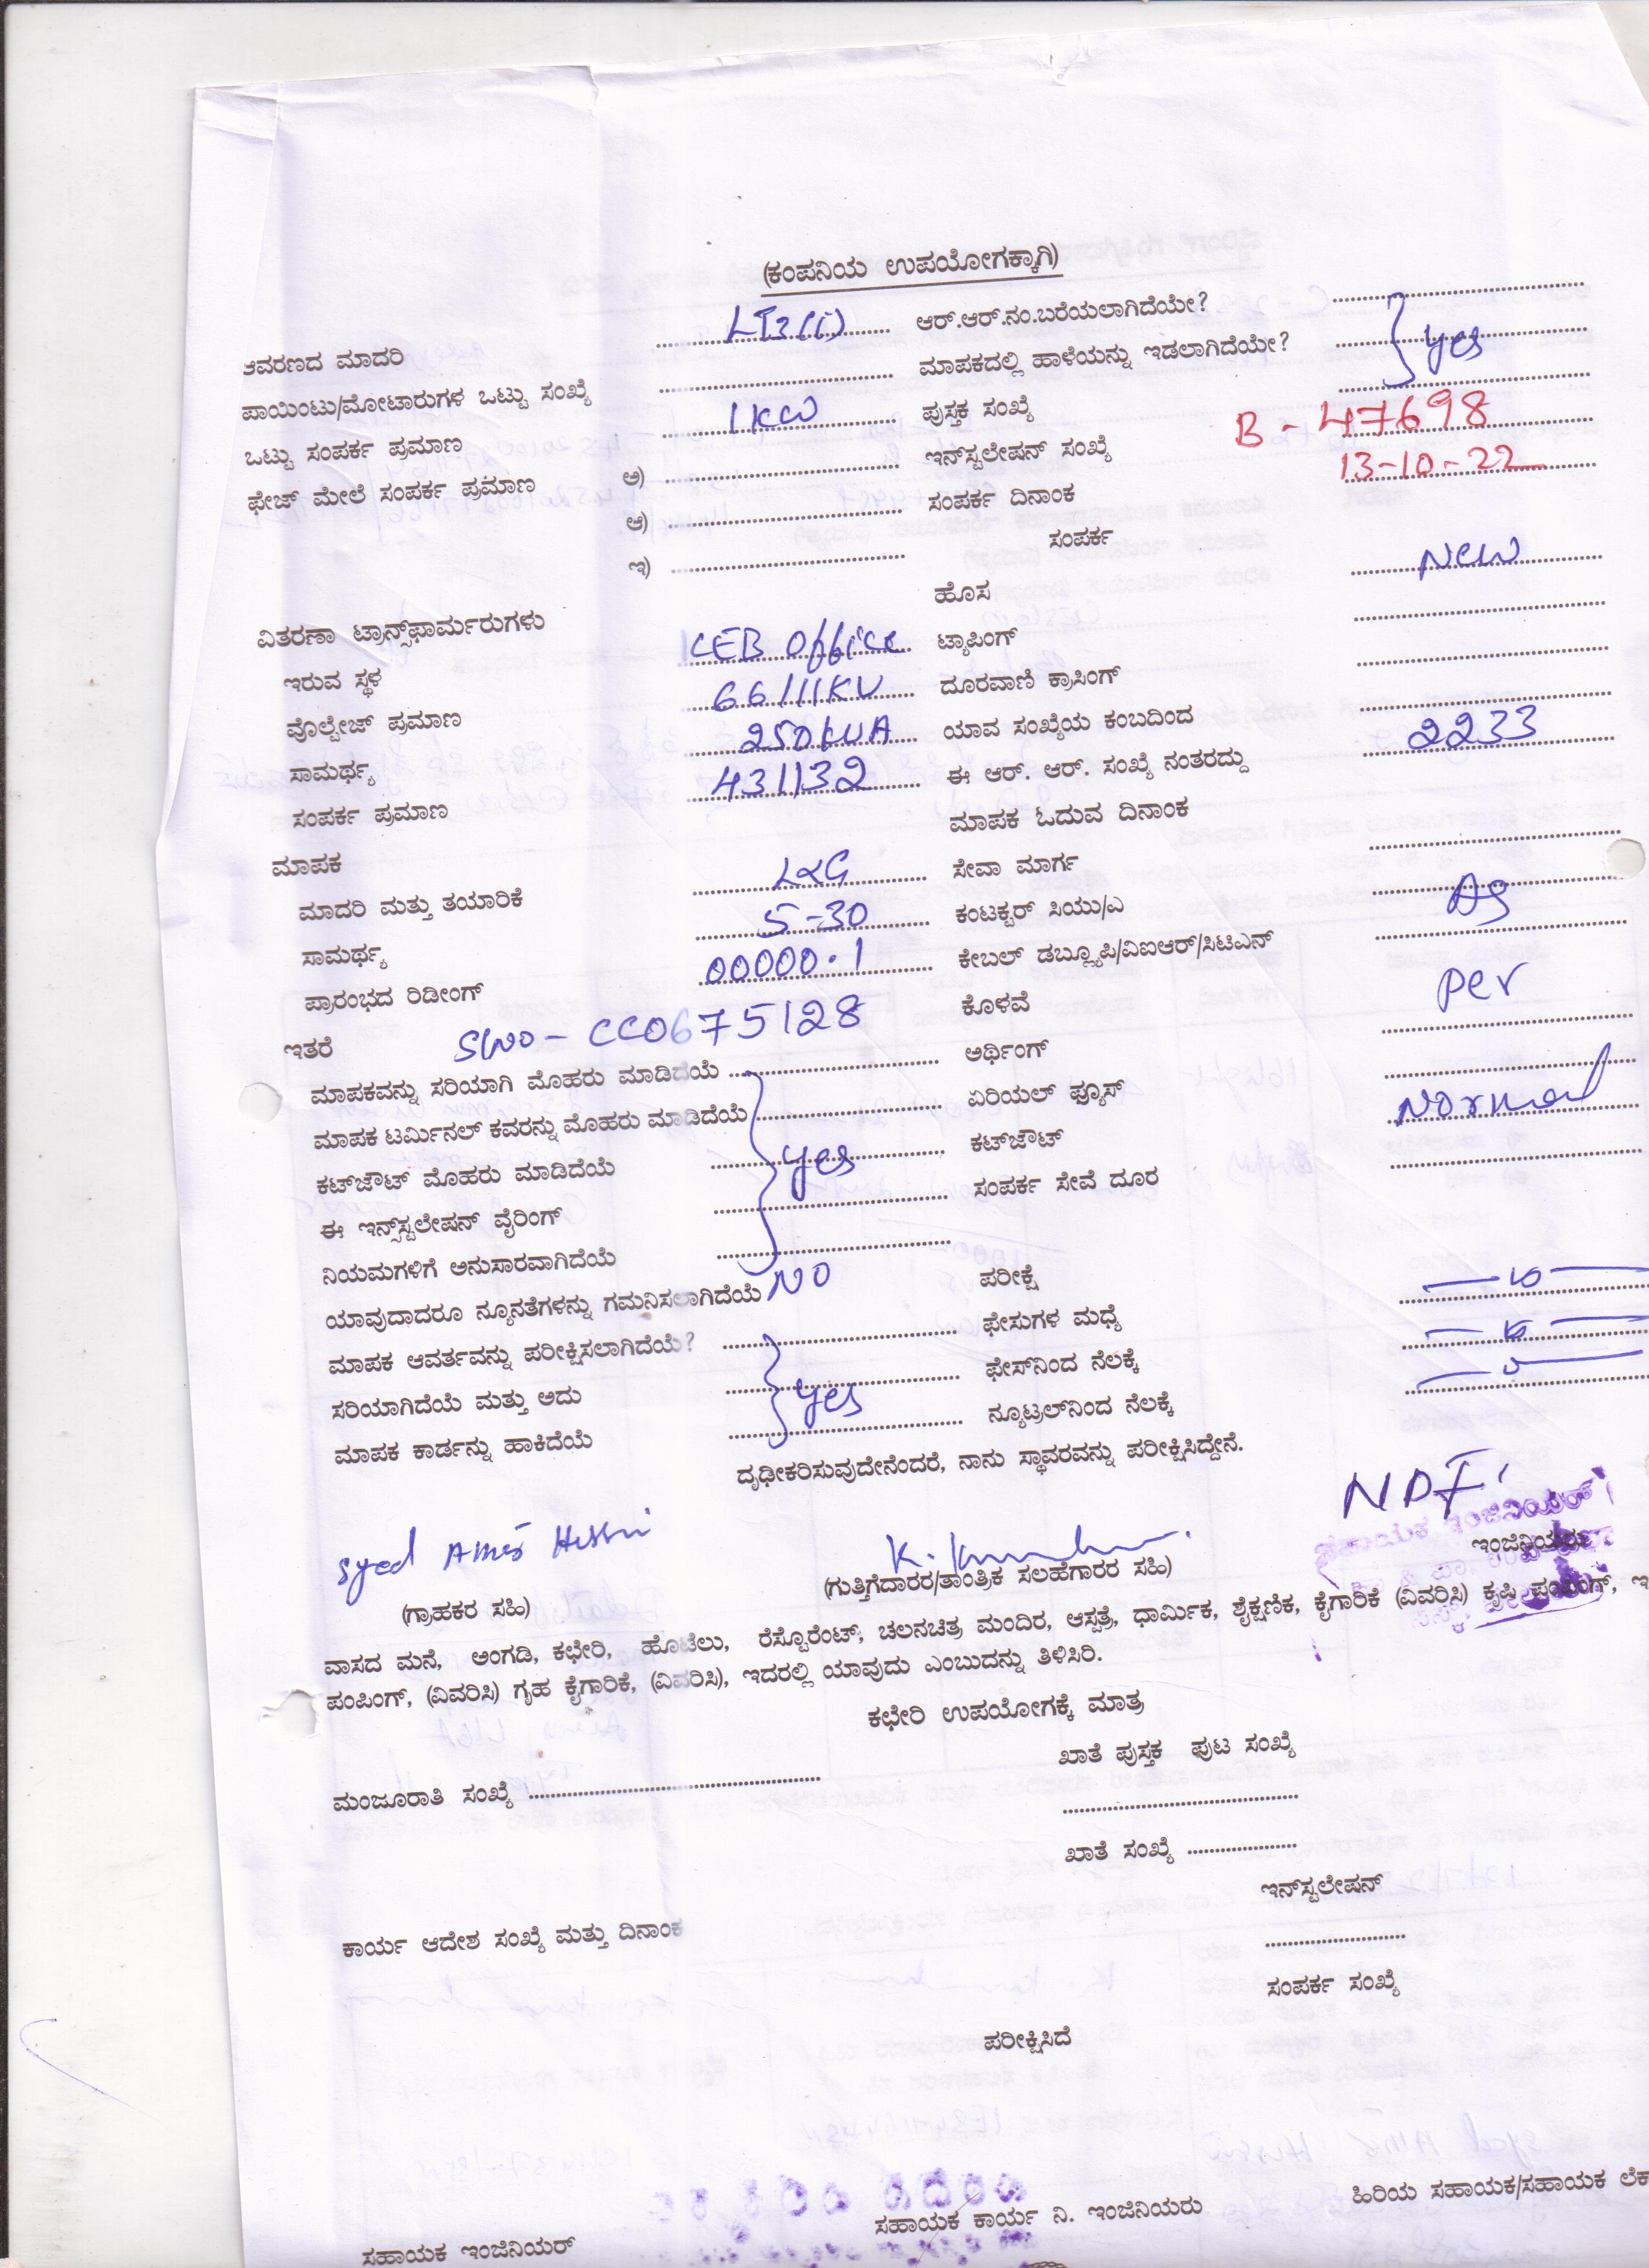 (ಕಂಪನಿಯ ಉಪಯೋಗಕ್ಕಾಗಿ)
ಆವರಣದ ಮಾದರಿ LT3(i) ಆರ್.ಆರ್.ನಂ.ಬರೆಯಲಾಗಿದೆಯೇ?
ಪಾಯಿಂಟು/ಮೋಟಾರುಗಳ ಒಟ್ಟು ಸಂಖ್ಯೆ ಮಾಪಕದಲ್ಲಿ ಹಾಳೆಯನ್ನು ಇಡಲಾಗಿದೆಯೇ? yes
ಒಟ್ಟು ಸಂಪರ್ಕ ಪ್ರಮಾಣ 1KW ಪುಸ್ತಕ ಸಂಖ್ಯೆ
ಫೇಜ್ ಮೇಲೆ ಸಂಪರ್ಕ ಪ್ರಮಾಣ ಅ) ಇನ್‌ಸ್ಟಲೇಷನ್ ಸಂಖ್ಯೆ B - 47698
ಆ) ಸಂಪರ್ಕ ದಿನಾಂಕ 13-10-22
ಇ) ಸಂಪರ್ಕ
ಹೊಸ New
ವಿತರಣಾ ಟ್ರಾನ್ಸ್‌ಫಾರ್ಮರುಗಳು
ಇರುವ ಸ್ಥಳ KEB Office ಟ್ಯಾಪಿಂಗ್
ವೊಲ್ಟೇಜ್ ಪ್ರಮಾಣ 66/11KV ದೂರವಾಣಿ ಕ್ರಾಸಿಂಗ್
ಸಾಮರ್ಥ್ಯ 250KVA ಯಾವ ಸಂಖ್ಯೆಯ ಕಂಬದಿಂದ
ಸಂಪರ್ಕ ಪ್ರಮಾಣ 431132 ಈ ಆರ್. ಆರ್. ಸಂಖ್ಯೆ ನಂತರದ್ದು 2233
ಮಾಪಕ ಮಾಪಕ ಓದುವ ದಿನಾಂಕ
ಮಾದರಿ ಮತ್ತು ತಯಾರಿಕೆ L&G ಸೇವಾ ಮಾರ್ಗ
ಸಾಮರ್ಥ್ಯ 5-30 ಕಂಟಕ್ಟರ್ ಸಿಯು/ಎ As
ಪ್ರಾರಂಭದ ರಿಡೀಂಗ್ 00000.1 ಕೇಬಲ್ ಡಬ್ಲ್ಯೂಪಿ/ವಿಐಆರ್/ಸಿಟಿಎನ್
ಇತರೆ SNO - CC0675128 ಕೊಳವೆ per
ಮಾಪಕವನ್ನು ಸರಿಯಾಗಿ ಮೊಹರು ಮಾಡಿದೆಯೆ ಅರ್ಥಿಂಗ್
ಮಾಪಕ ಟರ್ಮಿನಲ್ ಕವರನ್ನು ಮೊಹರು ಮಾಡಿದೆಯೆ ಏರಿಯಲ್ ಫ್ಯೂಸ್ Normal
ಕಟ್‌ಔಟ್ ಮೊಹರು ಮಾಡಿದೆಯೆ yes ಕಟ್‌ಔಟ್
ಈ ಇನ್ಸ್‌ಸ್ಟಲೇಷನ್ ವೈರಿಂಗ್ ಸಂಪರ್ಕ ಸೇವೆ ದೂರ
ನಿಯಮಗಳಿಗೆ ಅನುಸಾರವಾಗಿದೆಯೆ
ಯಾವುದಾದರೂ ನ್ಯೂನತೆಗಳನ್ನು ಗಮನಿಸಲಾಗಿದೆಯೆ NO ಪರೀಕ್ಷೆ
ಮಾಪಕ ಆವರ್ತವನ್ನು ಪರೀಕ್ಷಿಸಲಾಗಿದೆಯೆ? ಫೇಸುಗಳ ಮಧ್ಯೆ
ಸರಿಯಾಗಿದೆಯೆ ಮತ್ತು ಅದು yes ಫೇಸ್‌ನಿಂದ ನೆಲಕ್ಕೆ
ಮಾಪಕ ಕಾರ್ಡನ್ನು ಹಾಕಿದೆಯೆ ನ್ಯೂಟ್ರಲ್‌ನಿಂದ ನೆಲಕ್ಕೆ
ದೃಢೀಕರಿಸುವುದೇನೆಂದರೆ, ನಾನು ಸ್ಥಾವರವನ್ನು ಪರೀಕ್ಷಿಸಿದ್ದೇನೆ.
Syed
ಸಹಾಯಕ ಇಂಜಿನಿಯರ್
ಇಂಜಿನಿಯರು
(ಗ್ರಾಹಕರ ಸಹಿ) (ಗುತ್ತಿಗೆದಾರರ/ತಾಂತ್ರಿಕ ಸಲಹೆಗಾರರ ಸಹಿ)
ವಾಸದ ಮನೆ, ಅಂಗಡಿ, ಕಛೇರಿ, ಹೊಟೆಲು, ರೆಸ್ಟೊರೆಂಟ್, ಚಲನಚಿತ್ರ ಮಂದಿರ, ಆಸ್ಪತ್ರೆ, ಧಾರ್ಮಿಕ, ಶೈಕ್ಷಣಿಕ, ಕೈಗಾರಿಕೆ (ವಿವರಿಸಿ) ಕೃಷಿ ಪಂಪಿಂಗ್,
ಪಂಪಿಂಗ್, (ವಿವರಿಸಿ) ಗೃಹ ಕೈಗಾರಿಕೆ, (ವಿವರಿಸಿ), ಇದರಲ್ಲಿ ಯಾವುದು ಎಂಬುದನ್ನು ತಿಳಿಸಿರಿ.
ಕಛೇರಿ ಉಪಯೋಗಕ್ಕೆ ಮಾತ್ರ
ಖಾತೆ ಪುಸ್ತಕ ಪುಟ ಸಂಖ್ಯೆ
ಮಂಜೂರಾತಿ ಸಂಖ್ಯೆ
ಖಾತೆ ಸಂಖ್ಯೆ
ಇನ್‌ಸ್ಟಲೇಷನ್
ಕಾರ್ಯ ಆದೇಶ ಸಂಖ್ಯೆ ಮತ್ತು ದಿನಾಂಕ
ಸಂಪರ್ಕ ಸಂಖ್ಯೆ
ಪರೀಕ್ಷಿಸಿದೆ
ಸಹಾಯಕ ಇಂಜಿನಿಯರ್ ಸಹಾಯಕ ಕಾರ್ಯ ನಿ. ಇಂಜಿನಿಯರು ಹಿರಿಯ ಸಹಾಯಕ/ಸಹಾಯಕ